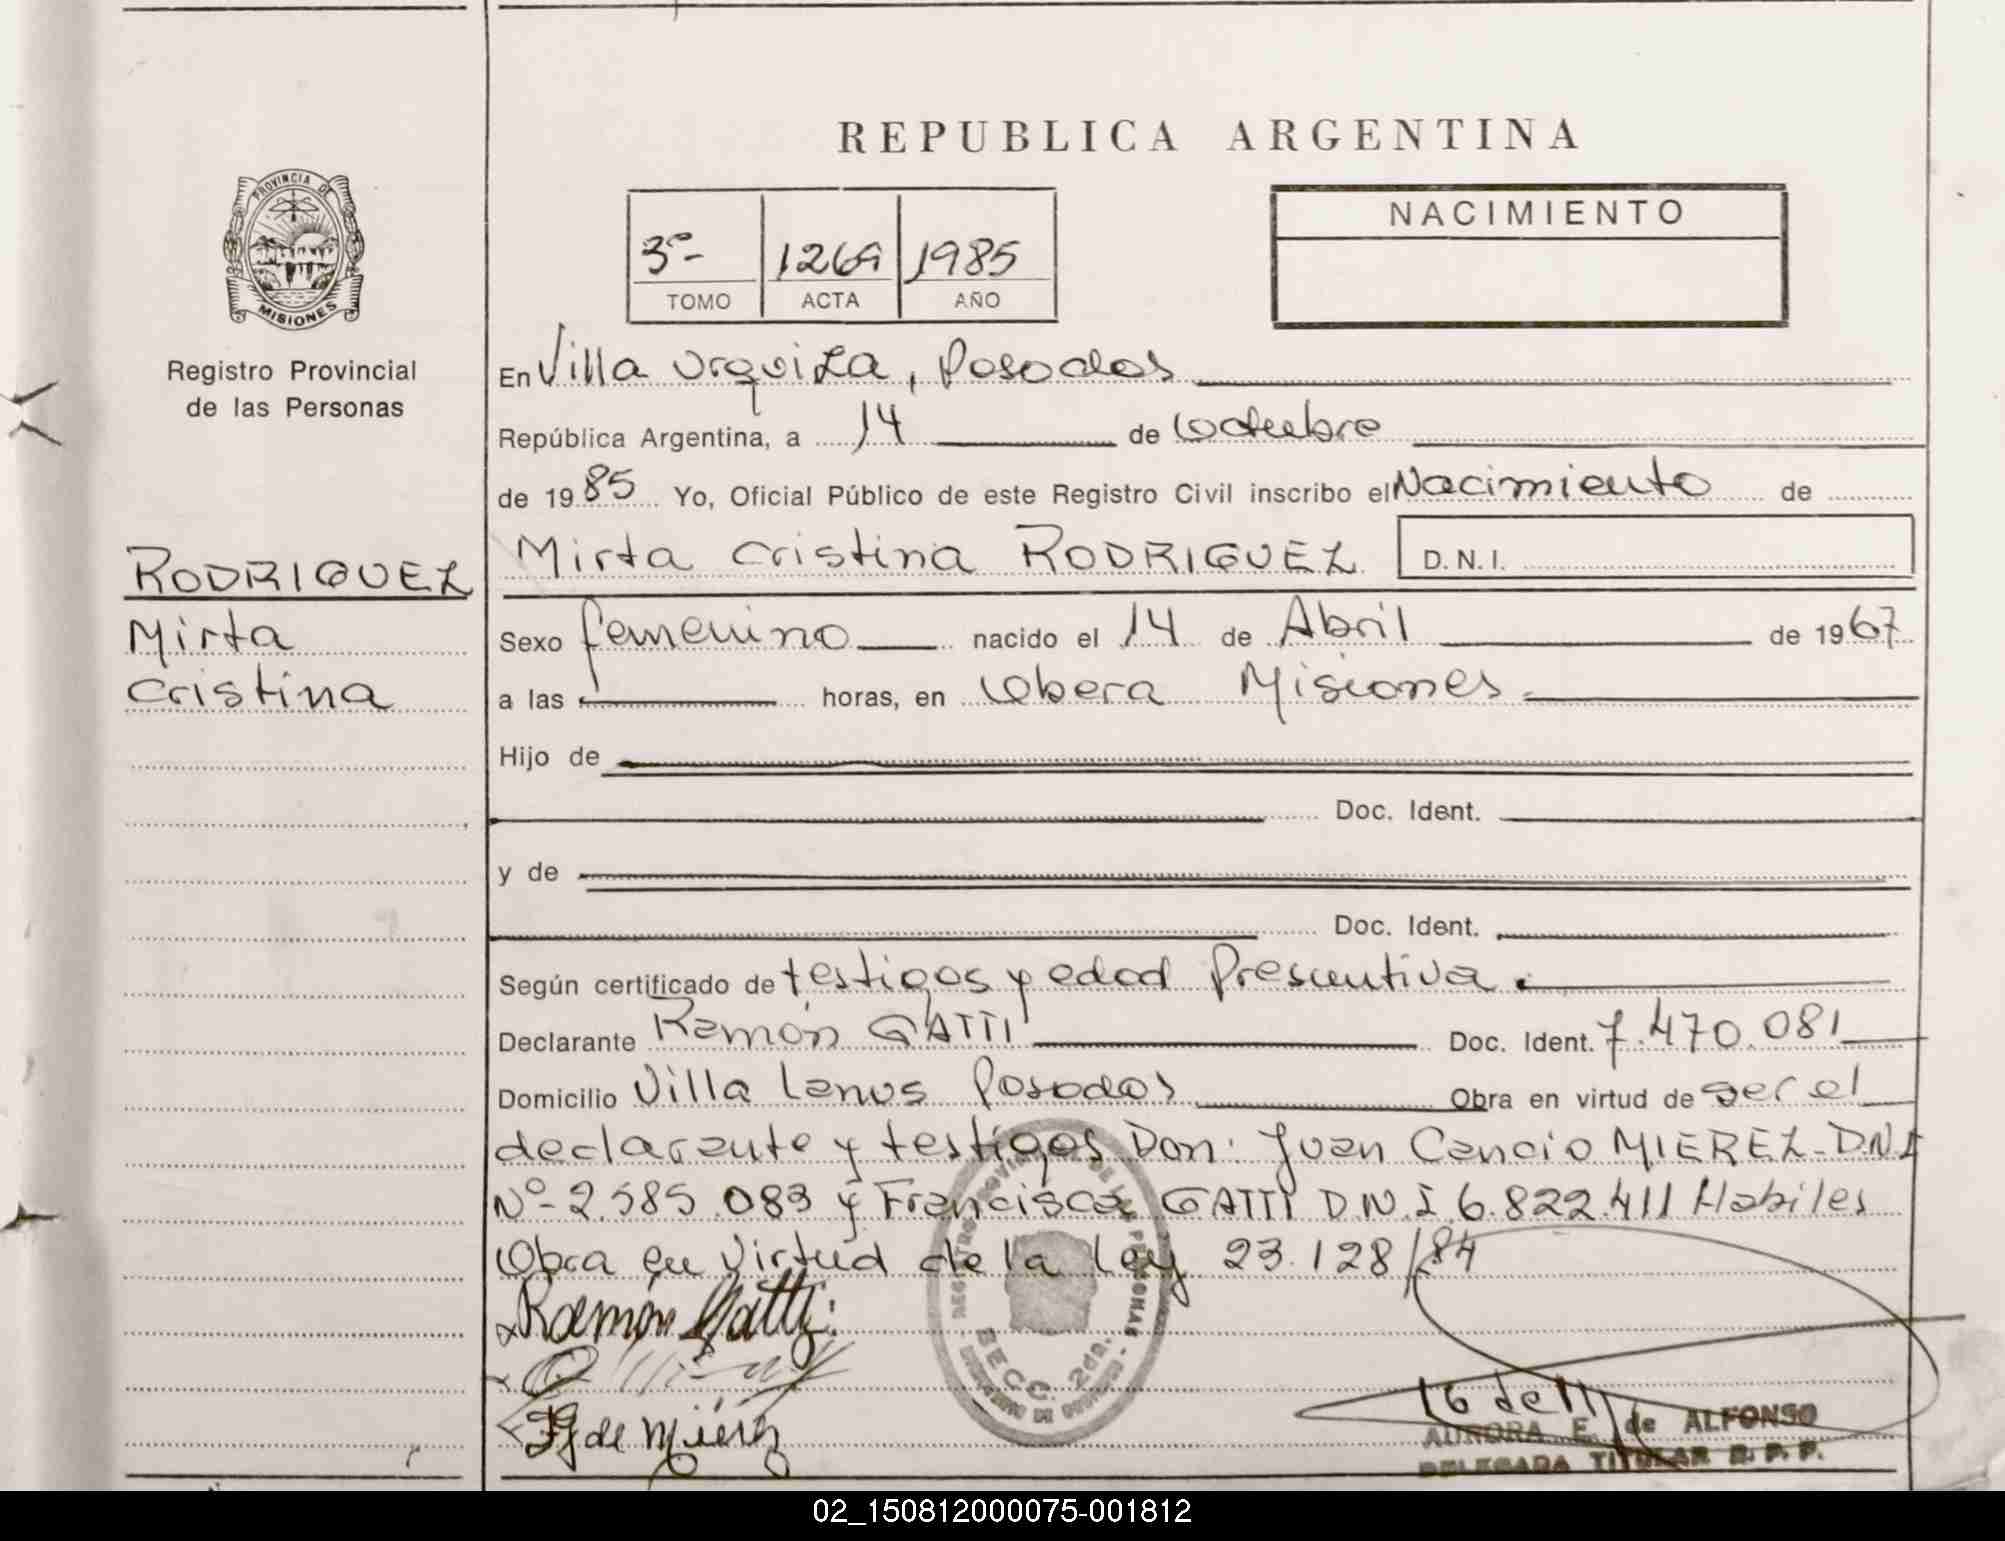 REPUBLICA ARGENTINA
PROVINCIA DE
MISIONES
Registro Provincial
de las Personas
3º-
1269
1985
TOMO
ACTA
AÑO
NACIMIENTO
En Villa Urquiza, Posadas
República Argentina, a 14 de Octubre
de 1985 Yo, Oficial Público de este Registro Civil inscribo el Nacimiento de
RODRIGUEZ
Mirta
Cristina
Mirta Cristina RODRIGUEZ D.N.I.
Sexo femenino nacido el 14 de Abril de 1967
a las horas, en Obera Misiones.
Hijo de
Doc. Ident.
y de
Doc. Ident.
Según certificado de testigos y edad Presuntiva.
Declarante Ramón GATTI Doc. Ident. 7.470.081
Domicilio Villa Lanus Posadas Obra en virtud de ser el
declarante y testigos Don: Juan Cancio MIEREZ - D.N.I
Nº- 2.585.083 y Francisca GATTI D.N.I 6.822.411 Habiles
Obra en Virtud de la Ley 23.128/84
Ramón Gatti
REGISTRO PROVINCIAL DE LAS PERSONAS
SECC. 2da.
F G de Mierez
16 de 11
AURORA E. de ALFONSO
DELEGADA TITULAR R. P. P.
02_150812000075-001812